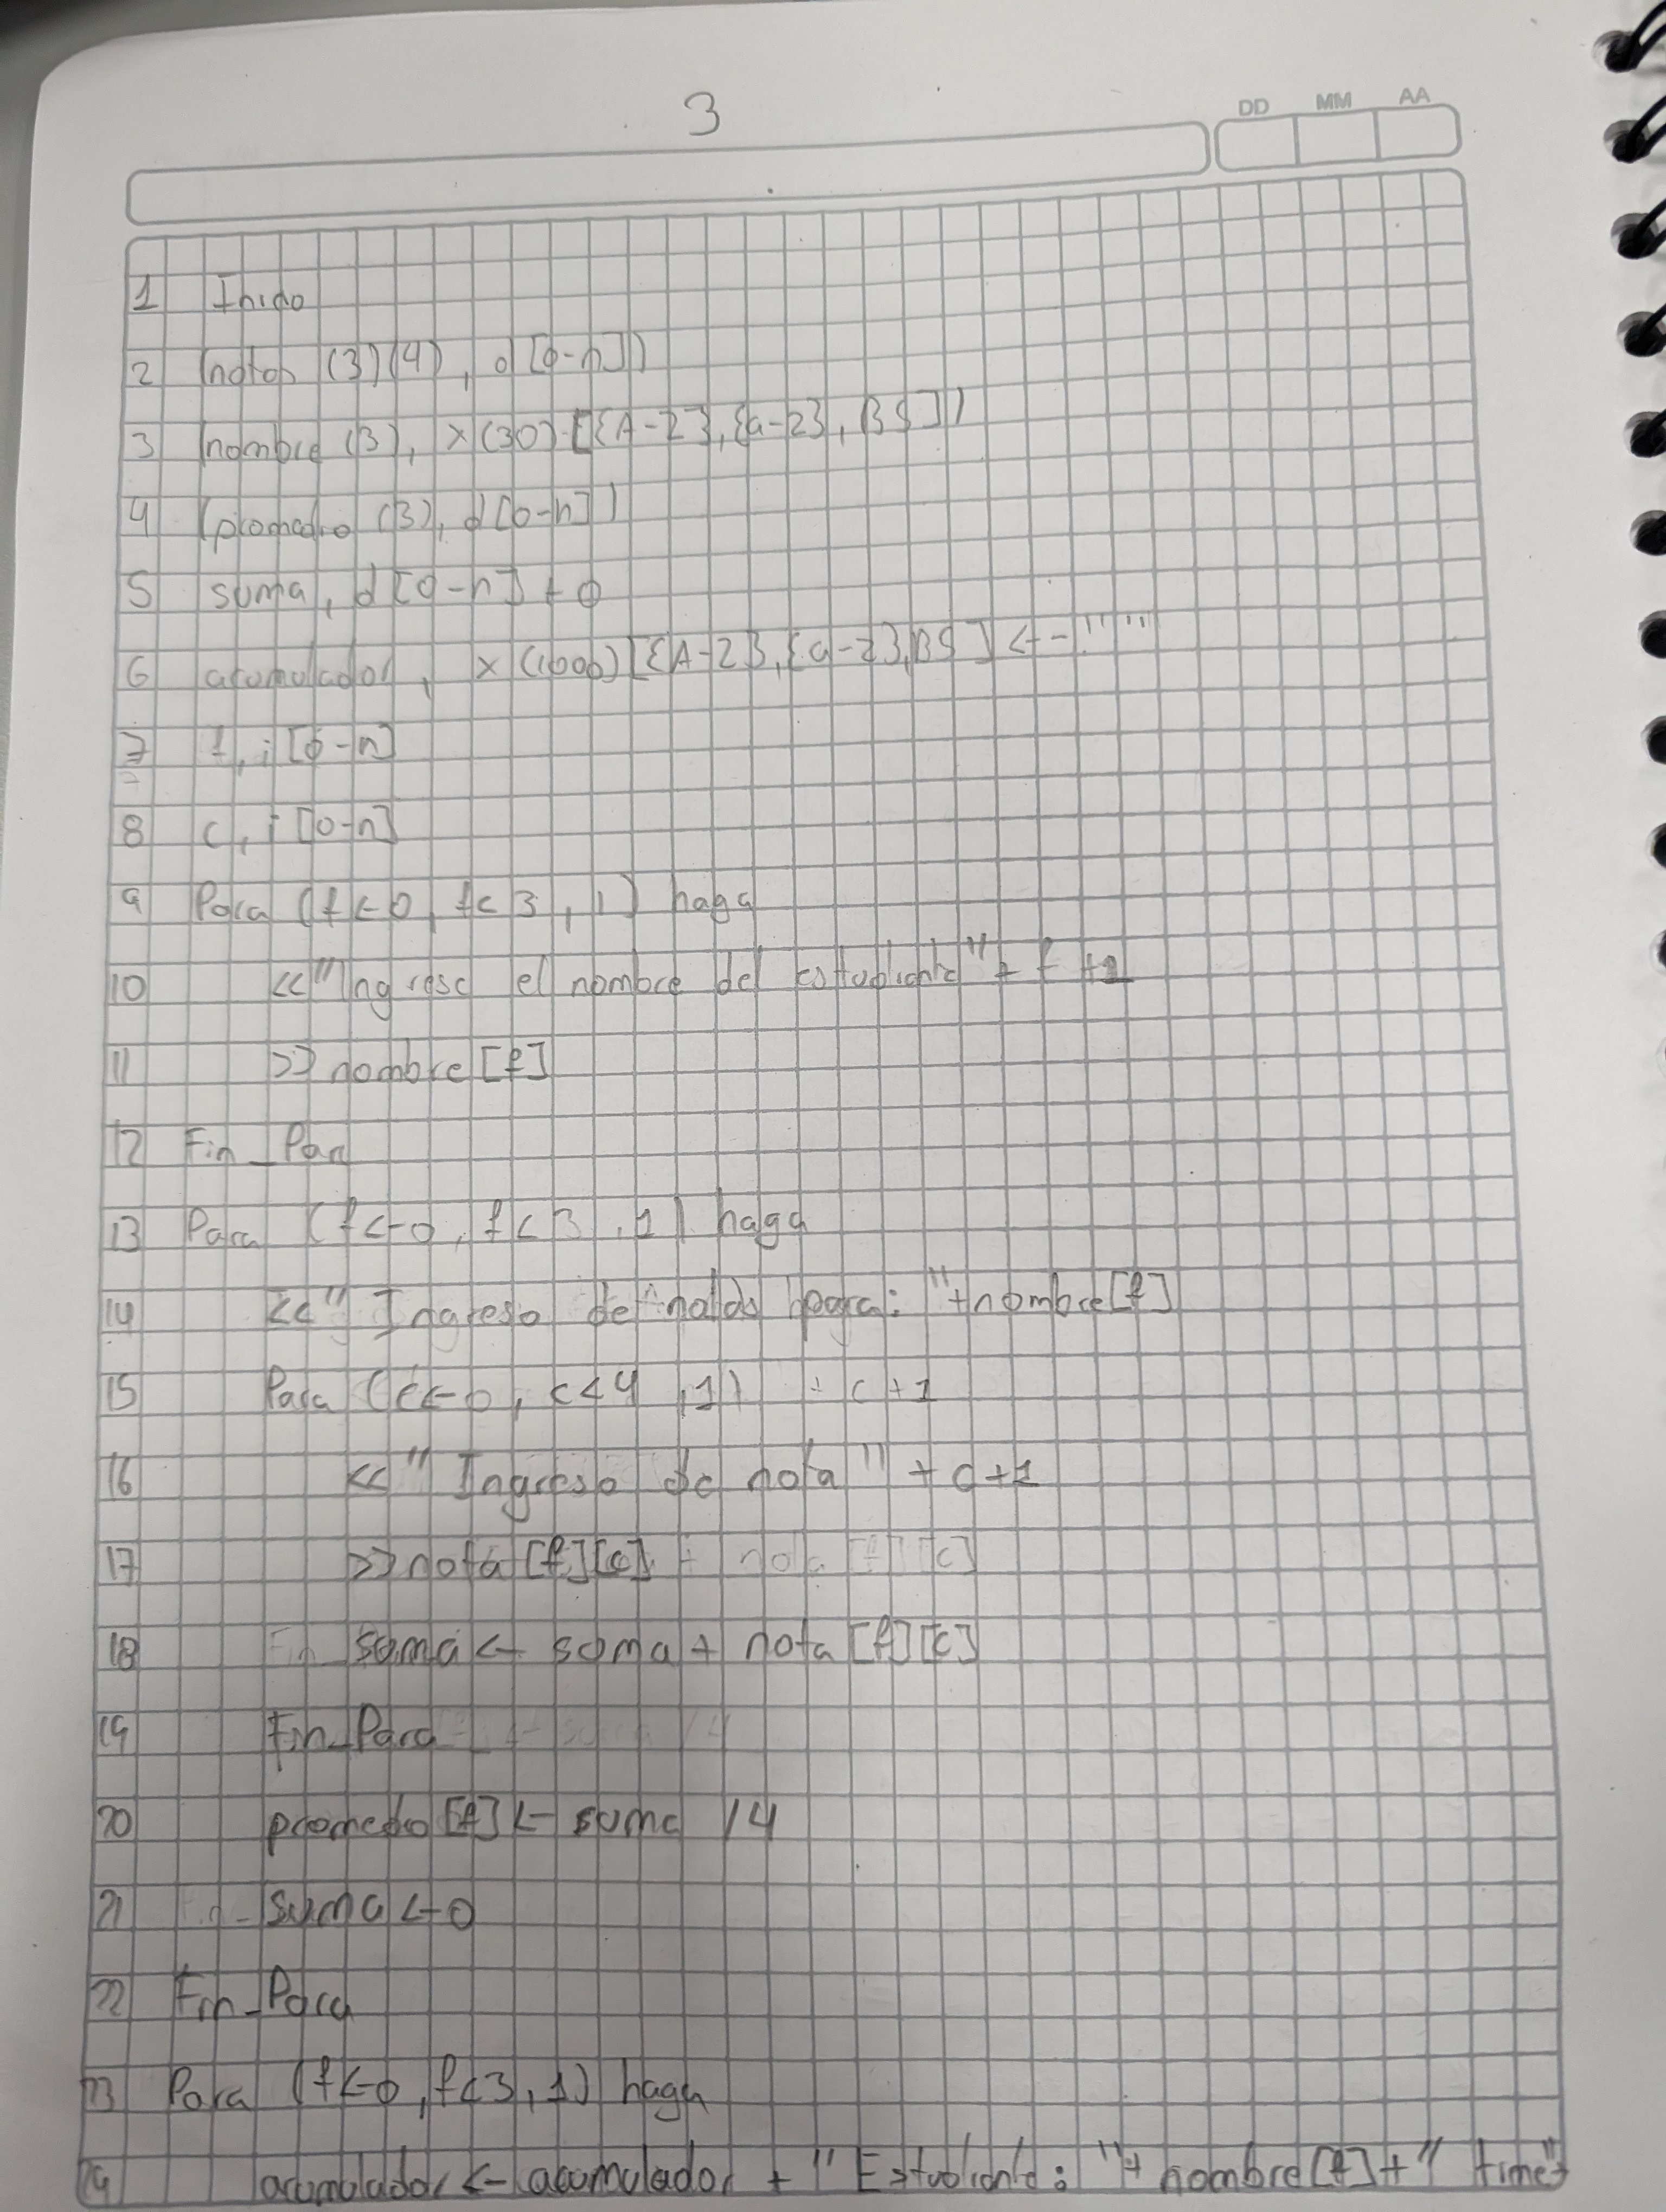 3
DD MM AA
1 Inicio
2 (notas (3)(4), d[0-n])
3 (nombre (3), X(30) [{A-Z}, {a-z}, BS])
4 (promedio (3), d[0-n])
5 suma, d[0-n] ← 0
6 acumulador, X(1000)[{A-Z}, {a-z}, BS] <- " "
7 f, i [0-n]
8 c, i [0-n]
9 Para (f<-0, f<3, 1) haga
10 <<"Ingrese el nombre del estudiante" + f +1
11 >> nombre [f]
12 Fin_Para
13 Para (f<-0, f<3, 1) haga
14 <<" Ingreso de notas para: "+nombre[f]
15 Para (c<-0, c<4, 1) + c +1
16 <<" Ingreso de nota " + c+1
17 >>nota [f][c]
18 suma <- suma + nota [f][c]
19 Fin_Para
20 promedio [f] <- suma /4
21 suma <-0
22 Fin_Para
23 Para (f<-0, f<3, 1) haga
24 acumulador <- acumulador + " Estudiante: "+ nombre[f]+" tiene"